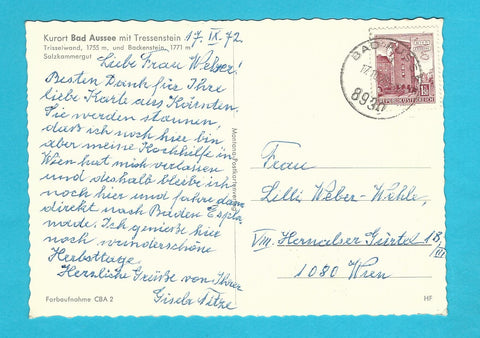 Kurort Bad Aussee mit Tressenstein
Trisselwand, 1755 m, und Backenstein, 1771 m
Salzkammergut
17. IX. 72.
Liebe Frau Weber!
Besten Dank für Ihre
liebe Karte aus Kärnten.
Sie werden staunen,
daß ich noch hier bin
aber meine Kochhilfe in
Wien hat mich verlassen
und deshalb bleibe ich
noch hier und fahre dann
direkt nach Baden Espla-
nade. Ich genieße hier
noch wunderschöne
Herbsttage.
Herzliche Grüße von Ihrer
Gisela
Farbaufnahme CBA 2
BAD AUSSEE
8990
REPUBLIK ÖSTERREICH
Frau
Lilli Weber-Wehle,
VIII. Hernalser Gürtel 18/
III
1080 Wien
HF